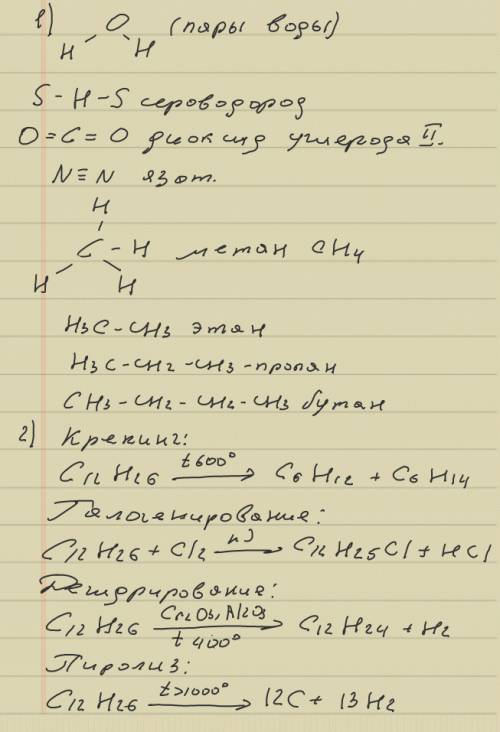 1) O (пары воды)
H H
S - H - S сероводород
O = C = O диоксид углерода II.
N ≡ N азот.
H
C - H метан CH4
H H
H3C - CH3 этан
H3C - CH2 - CH3 - пропан
CH3 - CH2 - CH2 - CH3 бутан
2) Крекинг:
t600°
C12H26 → C6H12 + C6H14
Галогенирование:
hυ
C12H26 + Cl2 → C12H25Cl + HCl
Дегидрирование:
Cr2O3, Al2O3
C12H26 → C12H24 + H2
t 400°
Пиролиз:
t>1000°
C12H26 → 12C + 13H2